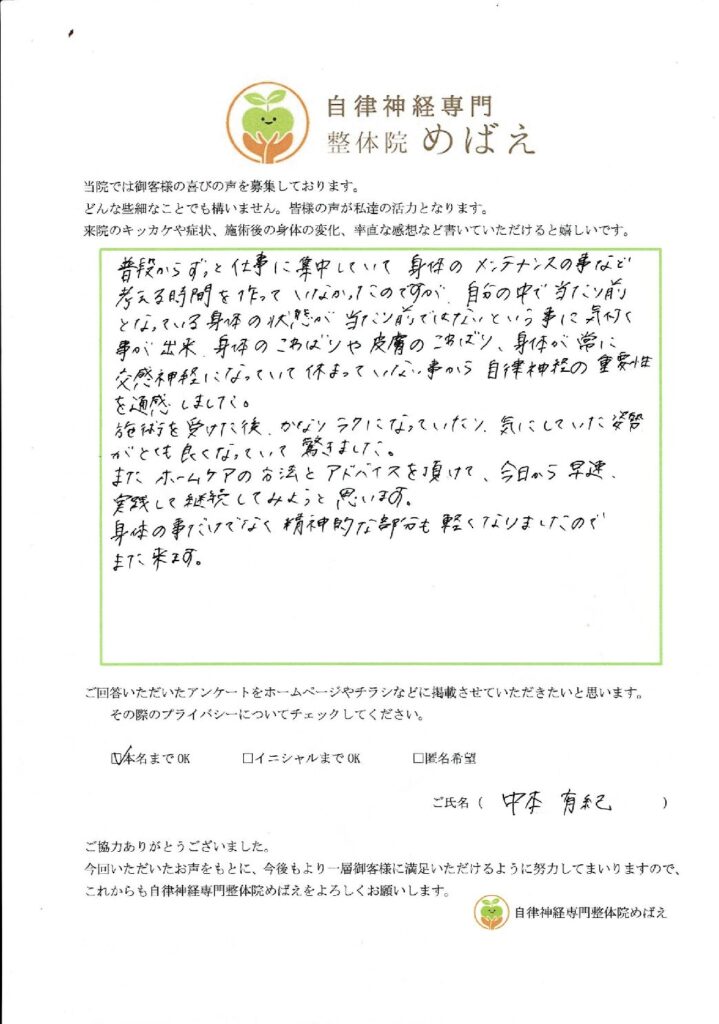 自律神経専門
整体院 めばえ
当院では御客様の喜びの声を募集しております。
どんな些細なことでも構いません。皆様の声が私達の活力となります。
来院のキッカケや症状、施術後の身体の変化、率直な感想など書いていただけると嬉しいです。
普段からずっと仕事に集中していて 身体の メンテナンスの事など
考える時間を作って いなかったのですが、自分の中で当たり前
となっている身体の状態が 当たり前ではないという事に気付く
事が出来、身体のこわばりや皮膚のこわばり、身体が常に
交感神経になっていて休まっていない事から 自律神経の重要性
を通感しました。
施術を受けた後、かなりラクになっていたり、気にしていた姿勢
がとても良くなっていて驚きました。
また ホームケアの方法とアドバイスを頂けて、今日から早速、
実践して継続してみようと思います。
身体の事だけでなく精神的な部分も軽くなりましたので
また来ます。
ご回答いただいたアンケートをホームページやチラシなどに掲載させていただきたいと思います。
その際のプライバシーについてチェックしてください。
☑本名までOK □イニシャルまでOK □匿名希望
ご氏名 ( 中本 有紀 )
ご協力ありがとうございました。
今回いただいたお声をもとに、今後もより一層御客様に満足いただけるように努力してまいりますので、
これからも自律神経専門整体院めばえをよろしくお願いします。
自律神経専門整体院めばえ